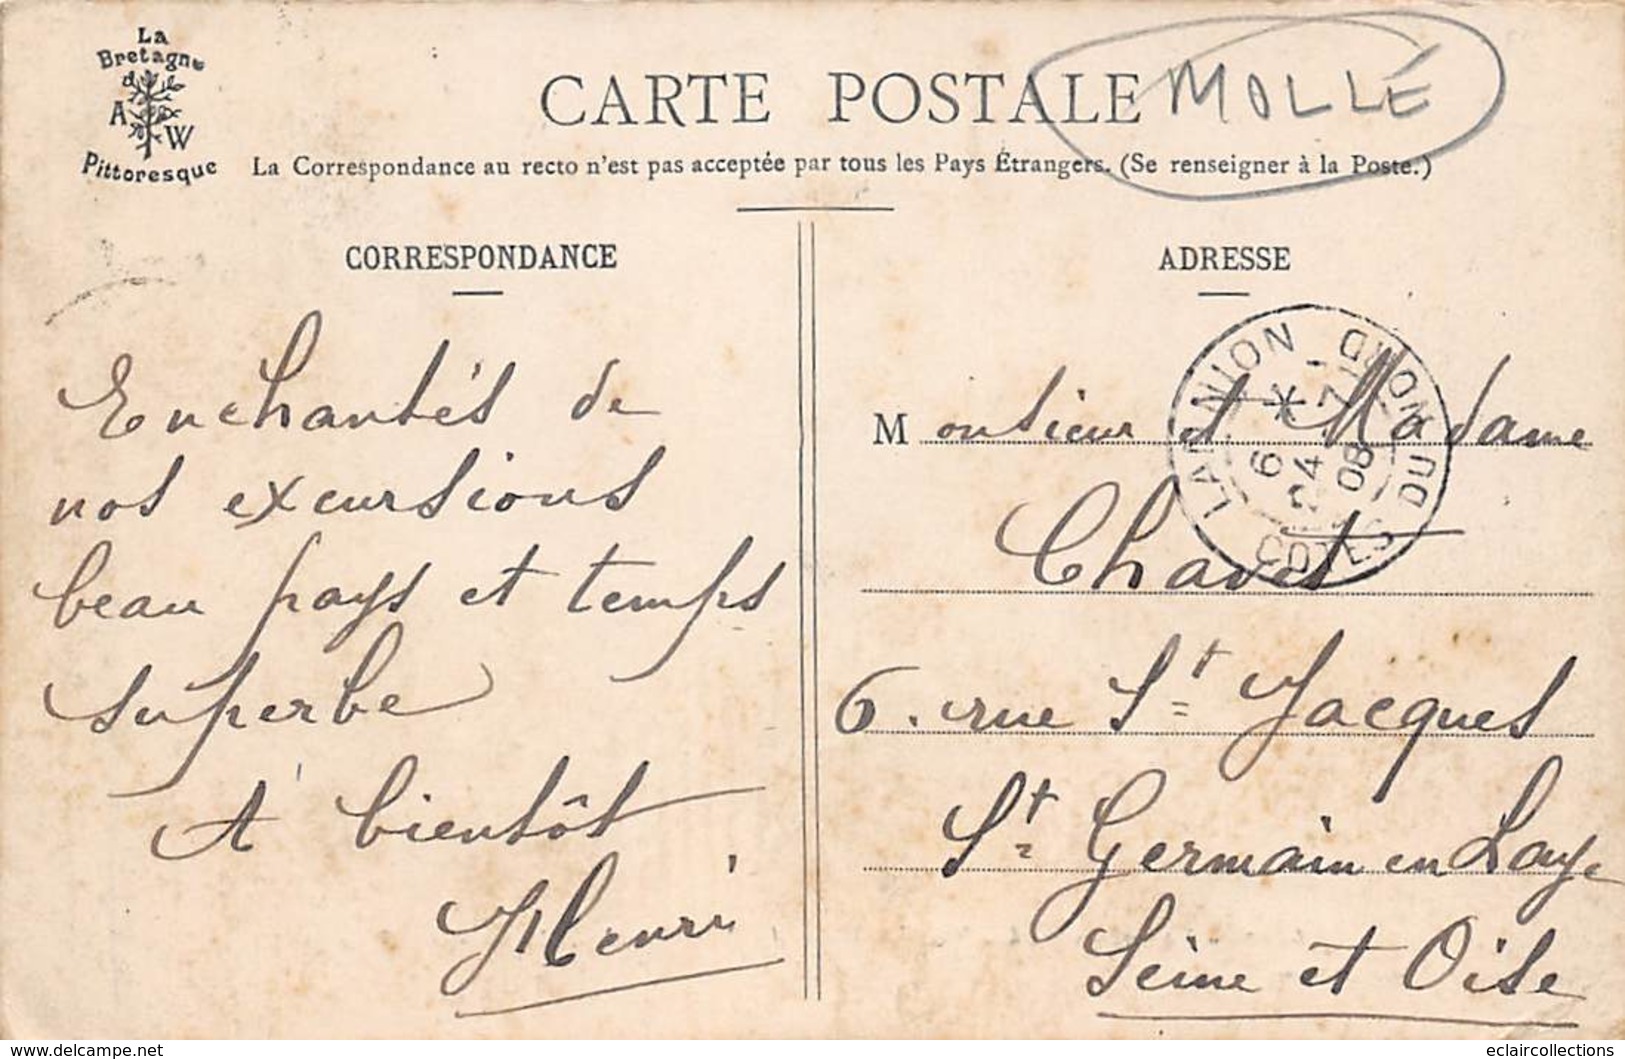 La
Bretagne
A W
Pittoresque
CARTE POSTALE
MOLLÉ
La Correspondance au recto n'est pas acceptée par tous les Pays Étrangers. (Se renseigner à la Poste.)
CORRESPONDANCE
Enchantés de
nos excursions
beau pays et temps
superbe
A bientôt
Henri
ADRESSE
LANNION
COTES DU NORD
6 *
24 7
08
Monsieur et Madame
Chavet
6. rue St Jacques
St Germain en Laye
Seine et Oise
www.delcampe.net
eclaircollections